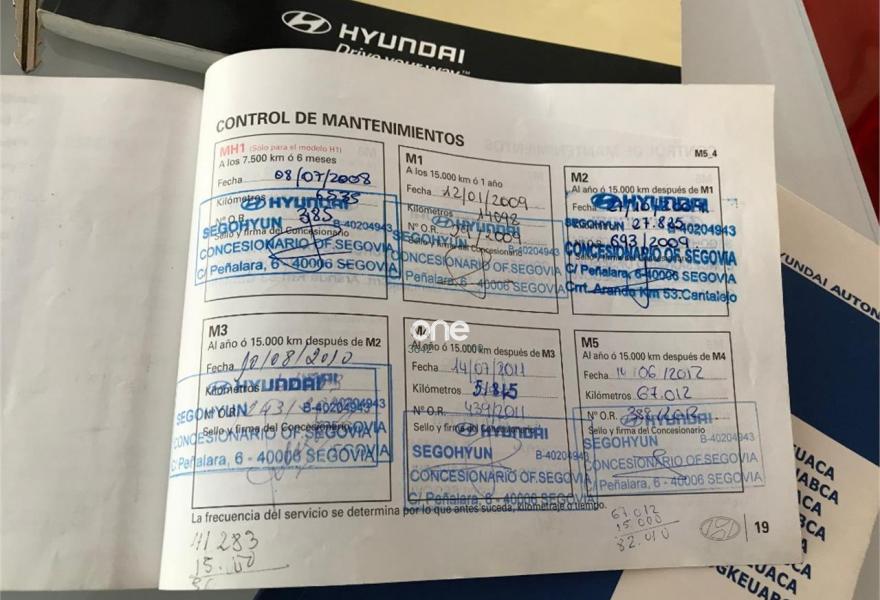 HYUNDAI
Drive your way™
CONTROL DE MANTENIMIENTOS
M5_4
MH1 (Sólo para el modelo H1)
A los 7.500 km ó 6 meses
Fecha 08/07/2008
Kilómetros 6535
Nº O.R. 385
Sello y firma del Concesionario
HYUNDAI
SEGOHYUN B-40204943
CONCESIONARIO OF. SEGOVIA
C/ Peñalara, 6 - 40006 SEGOVIA
M1
A los 15.000 km ó 1 año
Fecha 12/01/2009
Kilómetros 14092
Nº O.R. /2009
HYUNDAI
SEGOHYUN B-40204943
CONCESIONARIO OF. SEGOVIA
C/ Peñalara, 6 - 40006 SEGOVIA
M2
Al año ó 15.000 km después de M1
Fecha
HYUNDAI
27.825
SEGOHYUN B-40204943
693/2009
CONCESIONARIO OF. SEGOVIA
C/ Peñalara, 6-40006 SEGOVIA
Crrt. Arando Km 53.Cantalejo
M3
Al año ó 15.000 km después de M2
Fecha 10/08/2010
Kilómetros
HYUNDAI
Nº O.R.
SEGOHYUN B-40204943
Sello y firma del Concesionario
CONCESIONARIO OF. SEGOVIA
C/ Peñalara, 6 - 40006 SEGOVIA
one
Al año ó 15.000 km después de M3
Fecha 14/07/2011
Kilómetros 51.815
Nº O.R. 439/2011
Sello y firma del Concesionario
HYUNDAI
SEGOHYUN B-40204943
CONCESIONARIO OF. SEGOVIA
C/ Peñalara, 6 - 40006 SEGOVIA
M5
Al año ó 15.000 km después de M4
Fecha 14/06/2012
Kilómetros 67.012
Nº O.R. 388/2012
Sello y firma del Concesionario
HYUNDAI
SEGOHYUN B-40204943
CONCESIONARIO OF. SEGOVIA
C/ Peñalara, 6 - 40006 SEGOVIA
La frecuencia del servicio se determina por lo que antes suceda, kilometraje o tiempo.
41283
15.000
67.012
15.000
82.010
19
YUNDAI AUTON
UACA
UACA